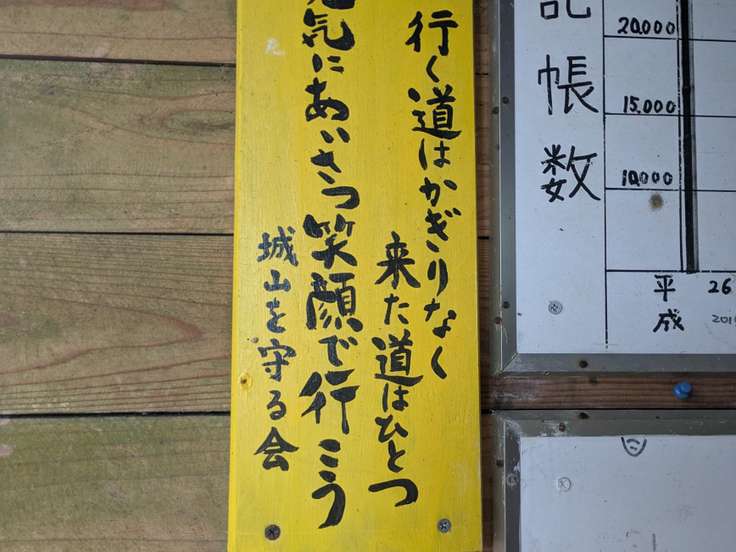 行く道はかぎりなく
来た道はひとつ
元気にあいさつ笑顔で行こう
城山を守る会
記帳数
20,000
15,000
10,000
平成
26